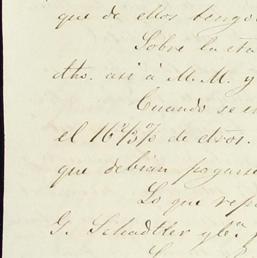 que de ellos tengo
Sobre la
dho. así á M. M. y
Cuando se
el 16⅔% de dros.
que debian pagarse
Lo que
G. Schadtler y Cª.